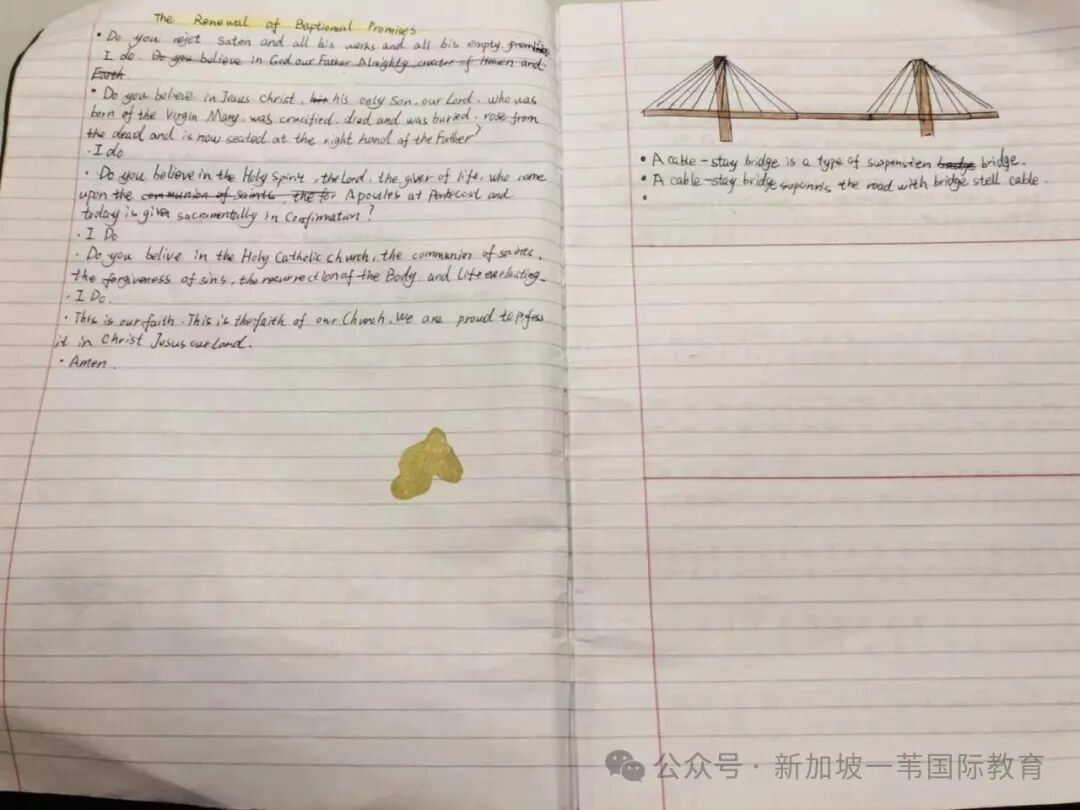 The Renewal of Baptiomal Promises
• Do you rejet Saten and all his works and all his empty promises
I do Do you believe in God our Father Almighty, creator of Heaven and
Earth
• Do you believe in Jesus Christ, his only Son, our Lord, who was
born of the Virgin Mary, was crucified, died and was buried, rose from
the dead and is now seated at the right hand of the Father?
· I do
· Do you believe in the Holy Spirit, the Lord, the giver of life, who came
upon the communion of saints, the for Apostles at Pentecost and
today is given sacramentally in Confirmation?
· I Do
· Do you belive in the Holy Catholic church, the communion of saints,
the forgiveness of sins, the resurrection of the Body and life everlasting.
· I Do.
· This is our faith. This is the faith of our Church. We are proud to profess
it in Christ Jusus our Lord.
· Amen.
• A cable-stay bridge is a type of suspension bridge.
• A cable-stay bridge the road with bridge stell cable.
公众号·新加坡一苇国际教育